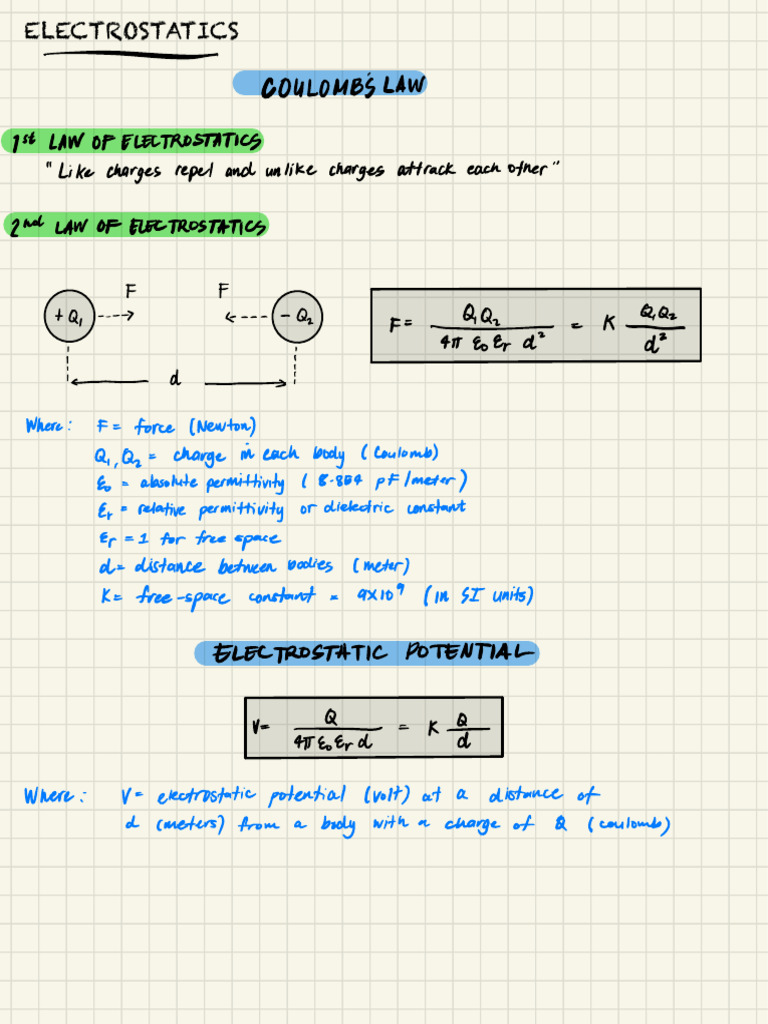 ELECTROSTATICS
COULOMB'S LAW
1st LAW OF ELECTROSTATICS
"Like charges repel and unlike charges attrack each other"
2nd LAW OF ELECTROSTATICS
F F
+Q₁ -Q₂
d
F = Q₁Q₂ / 4π ε₀ εᵣ d² = K Q₁Q₂ / d²
Where: F = force (Newton)
Q₁, Q₂ = charge in each body (Coulomb)
ε₀ = absolute permittivity (8.854 pF/meter)
εᵣ = relative permittivity or dielectric constant
εᵣ = 1 for free space
d = distance between bodies (meter)
K = free-space constant = 9x10⁹ (in SI units)
ELECTROSTATIC POTENTIAL
V = Q / 4π ε₀ εᵣ d = K Q / d
Where: V = electrostatic potential (volt) at a distance of
d (meters) from a body with a charge of Q (coulomb)